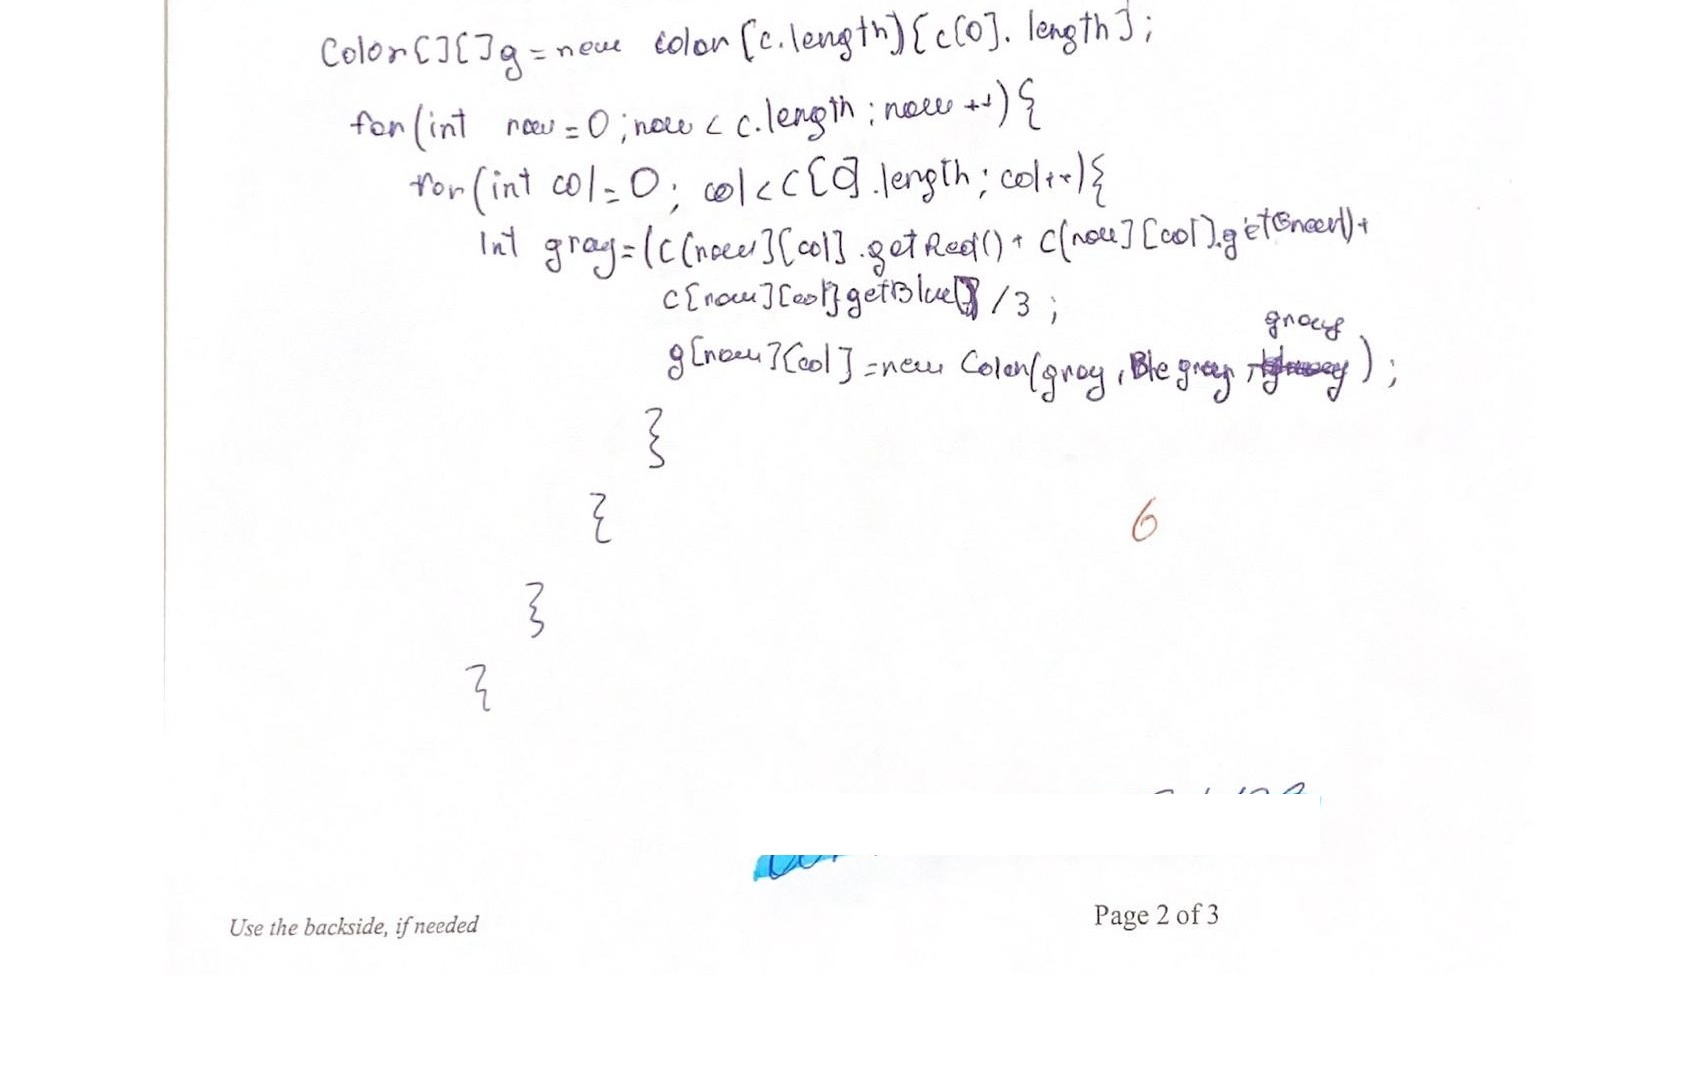 Color[][]g = new color [c.length][c[0]. length];
for(int row = 0; row < c.length; row ++) {
for(int col = 0; col < c[0].length; col++){
Int gray = (c[row][col].getRed() + c[row][col].getGreen() +
c[row][col].getBlue()) /3 ;
gray
g[row][col] = new Color(gray, gray, );
}
}
6
}
}
Use the backside, if needed
Page 2 of 3